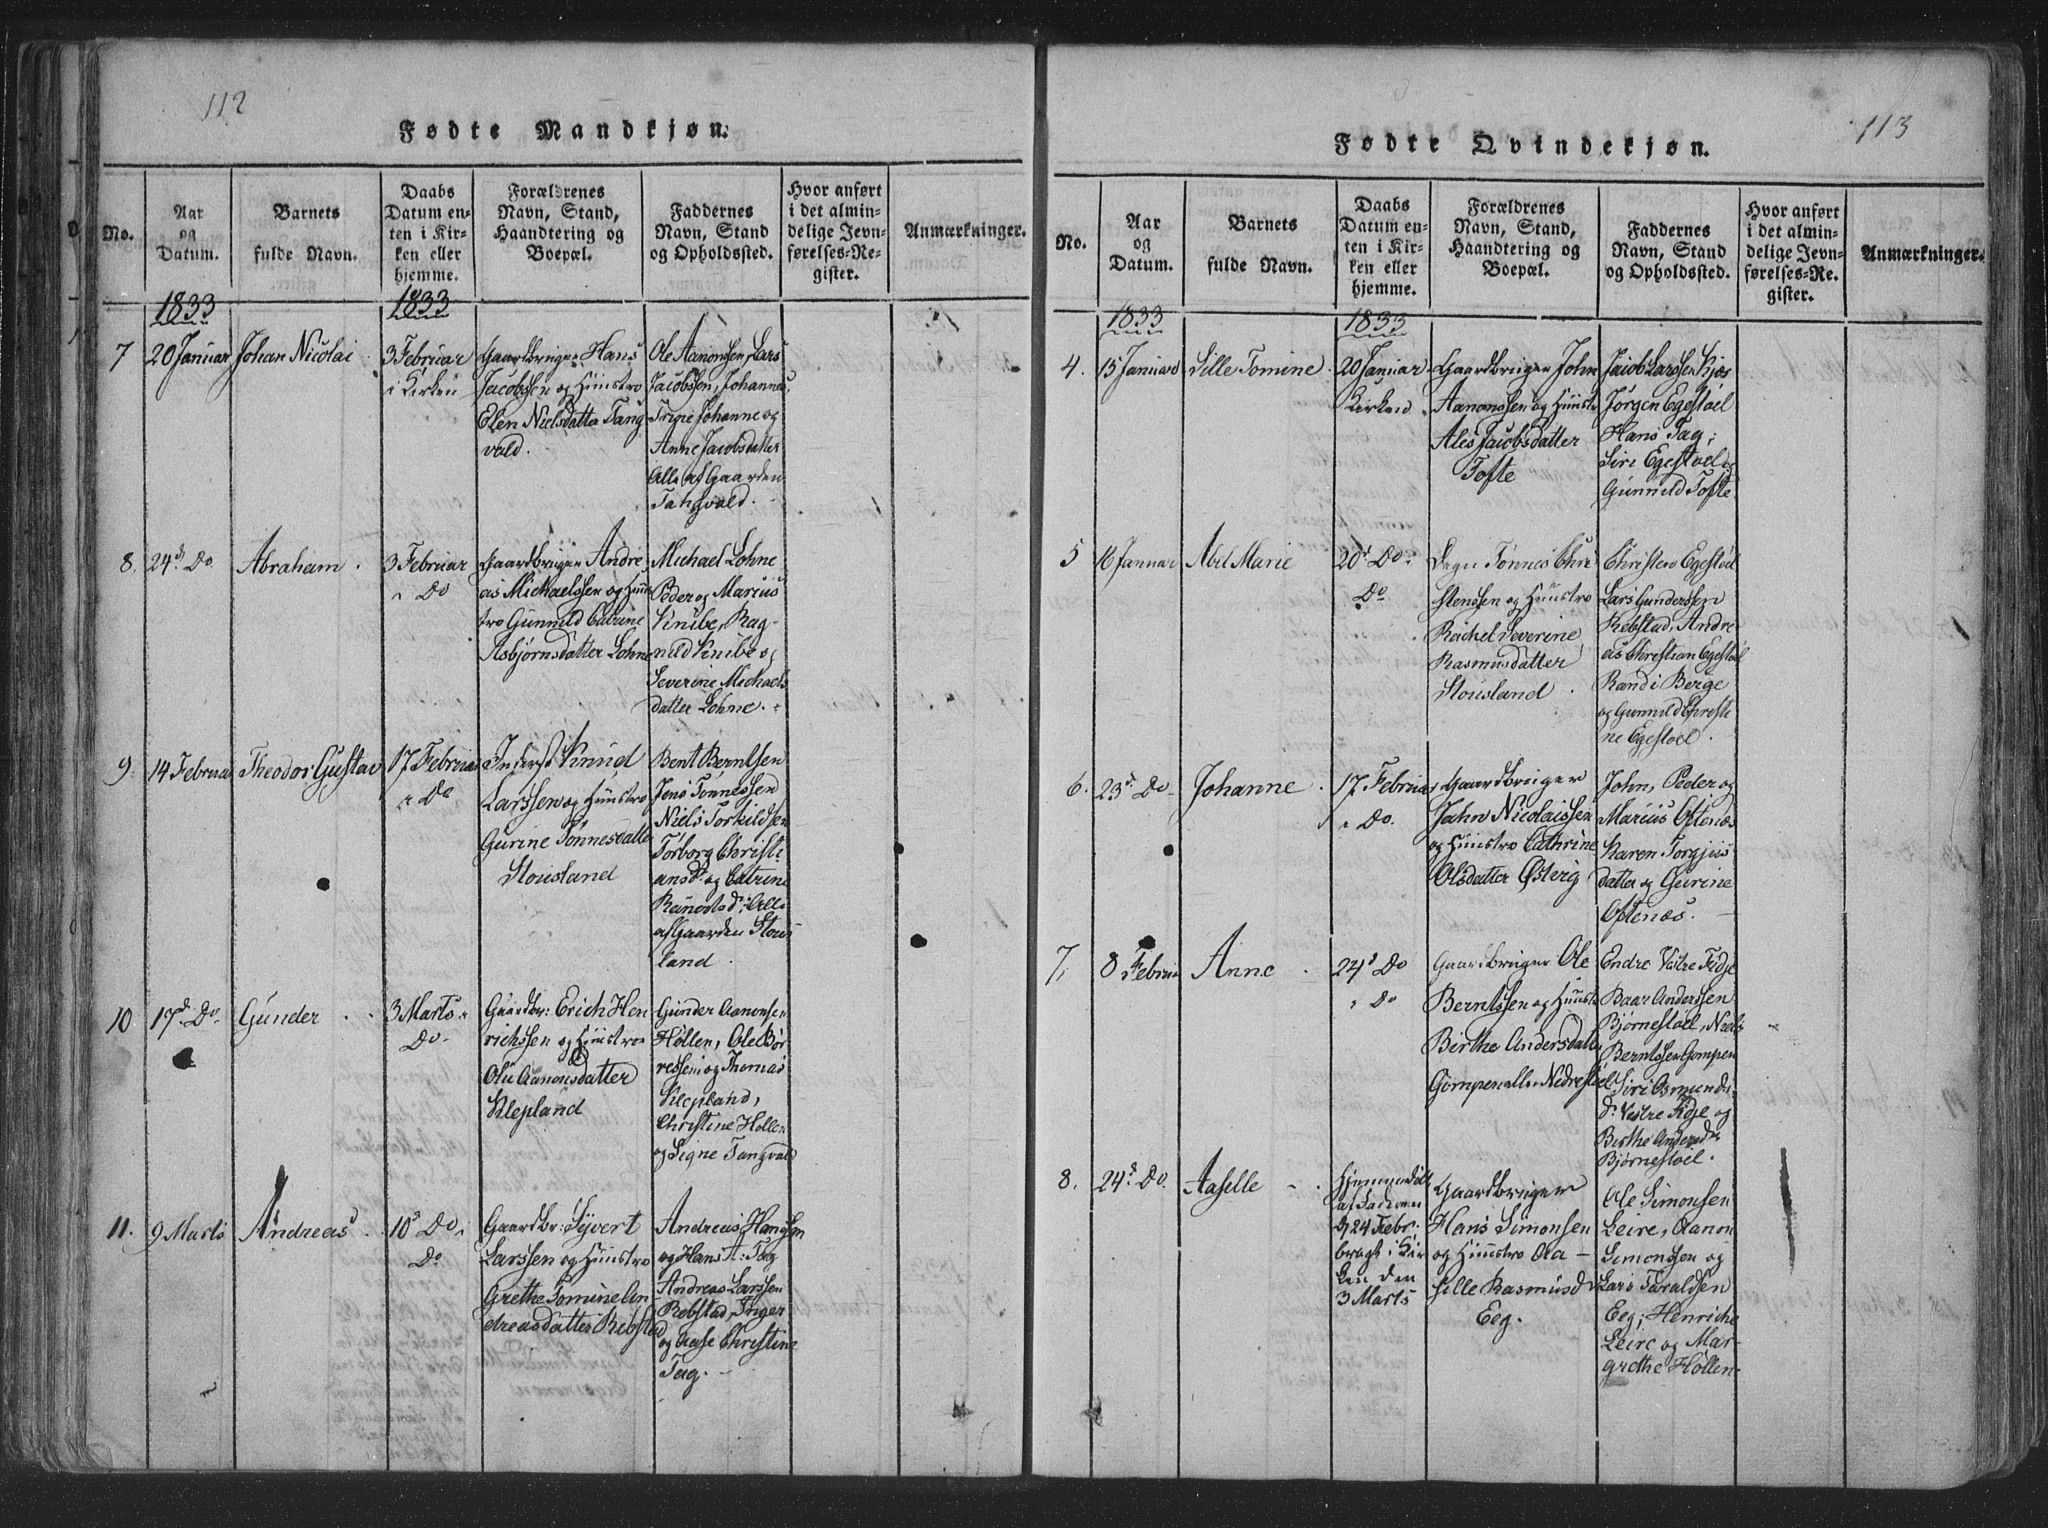 112
Fødte Mandkjøn.
No.
Aar
og
Datum.
Barnets
fulde Navn.
Daabs
Datum en-
ten i Kir-
ken eller
hjemme.
Forældrenes
Navn, Stand,
Haandtering og
Boepæl.
Faddernes
Navn, Stand
og Opholdssted.
Hvor anført
i det almin-
delige Jevn-
førelses-Re-
gister.
Anmærkninger.
1833
1833
7
20 Januar
Johan Nicolai
3 Februar
i Kirken
Gaardbruger Hans
Jacobssen og Hustro
Elen Nielsdatter Tang
vald.
Ole Aanonsen, Lars
Jacobssen, Johannes,
Trine Johanne og
Anne Jacobsdatter
Alle af Gaarden
Tangvald.
8.
24d Do
Abraham
3 Februar
Do
Gaardbruger Andre
as Michaelssen og Hus
tro Gunnild Catrine
Asbjørnsdatter Lohne
Michael Lohne
Peder og Marius
Knibe, Rag-
nild Knibe og
Severine Michaels
datter Lohne.
9.
14 Februar
Theodor Gustav
17 Februar
Do
Inderst Knud
Larssen og Hustro
Gurine Tønnesdatter
Stousland
Bent Berntsen
Jens Tønnessen
Niels Torkildsen
Torborg Christi
ansd. og Catrine
Reinertsd; Alle
af Gaarden Stous
land.
10
17d Do
Gunder
3 Marts
Do
Gaardbr: Erich Hen
richssen og Hustro
Olu Aanonsdatter
Klepland
Gunder Aanonsen
Hollen, Ole Bør
ressen og Thomas
Klepland,
Christine Hollen
og Signe Tangvald
11.
9 Marts
Andreas
10d Do
Do
Gaardbr: Syvert
Larssen og Hustro
Grethe Tomine An
dreasdatter Rebstad
Andreas Hanssen
og Hans A: Tag
Andreas Larssen
Rebstad, Inger
og Aase Christine
Tag.
113
Fødte Qvindekjøn.
No.
Aar
og
Datum.
Barnets
fulde Navn.
Daabs
Datum en-
ten i Kir-
ken eller
hjemme.
Forældrenes
Navn, Stand,
Haandtering og
Boepæl.
Faddernes
Navn, Stand
og Opholdssted.
Hvor anført
i det almin-
delige Jevn-
førelses-Re-
gister.
Anmærkninger.
1833
1833
4.
15 Januar
Sille Tomine
20 Januar
Kirken
Gaardbruger John
Aanonssen og Hustro
Ales Jacobsdatter
Tofte
Jacob Larssen
Jørgen Egestøel
Hans Tag;
Siri Egestøel og
Gunnild Tofte
5
16 Januar
Abel Marie
20d Do
Do
Tønnes Chri
stenssen og Hustro
Rachel Severine
Rasmusdatter
Stousland.
Christen Egestøel
Lars Gunderssen
Rebstad, Andre
as Christian Egestøel
Randi Berge
og Gunnild Christi
ne Egestøel.
6.
23d Do
Johanne
17 Februar
Do.
Gaardbruger
Jahn Nicolaissen
og Hustro Cathrine
Olsdatter Østerig
John, Peder og
Marius Oftenæs
Karen Torgjus
datter og Gurine
Oftenæs.
7,
8 Februar
Anne
24d Do
Do
Gaardbruger Ole
Berntssen og Hustro
Birthe Andersdatter
Gompen eller Nedrestøel
Endre Vestre Fidje
Baar Anderssen
Bjørnestøel, Niels
Berntssen Gompen
Siri Osmunds
d. Vestre Fidje og
Birthe Andersdr
Bjørnestøel.
8.
24d Do
Aaselle
Hjemmedøbt
af Faderen
d 24 Febr:
bragt i Kir
ken den
3 Marts
Gaardbruger
Hans Simonsen
og Hustro Ola
Sille Rasmusd
Eeg.
Ole Simonsen
Leire, Aanon
Simonssen og
Lars Taraldsen
Eeg; Henriche
Leire og Mar-
grethe Hollen